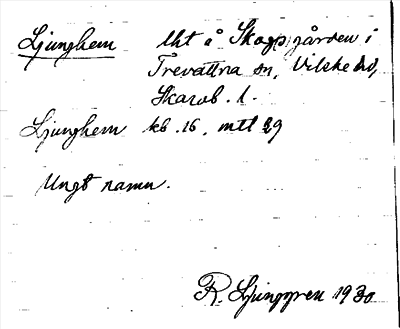 Ljunghem lht å Skogsgården i
Trevattna sn, Vilske hd,
Skarab. l.
Ljunghem kb. 16, mtl 29
Ungt namn.
R. Ljunggren 1930